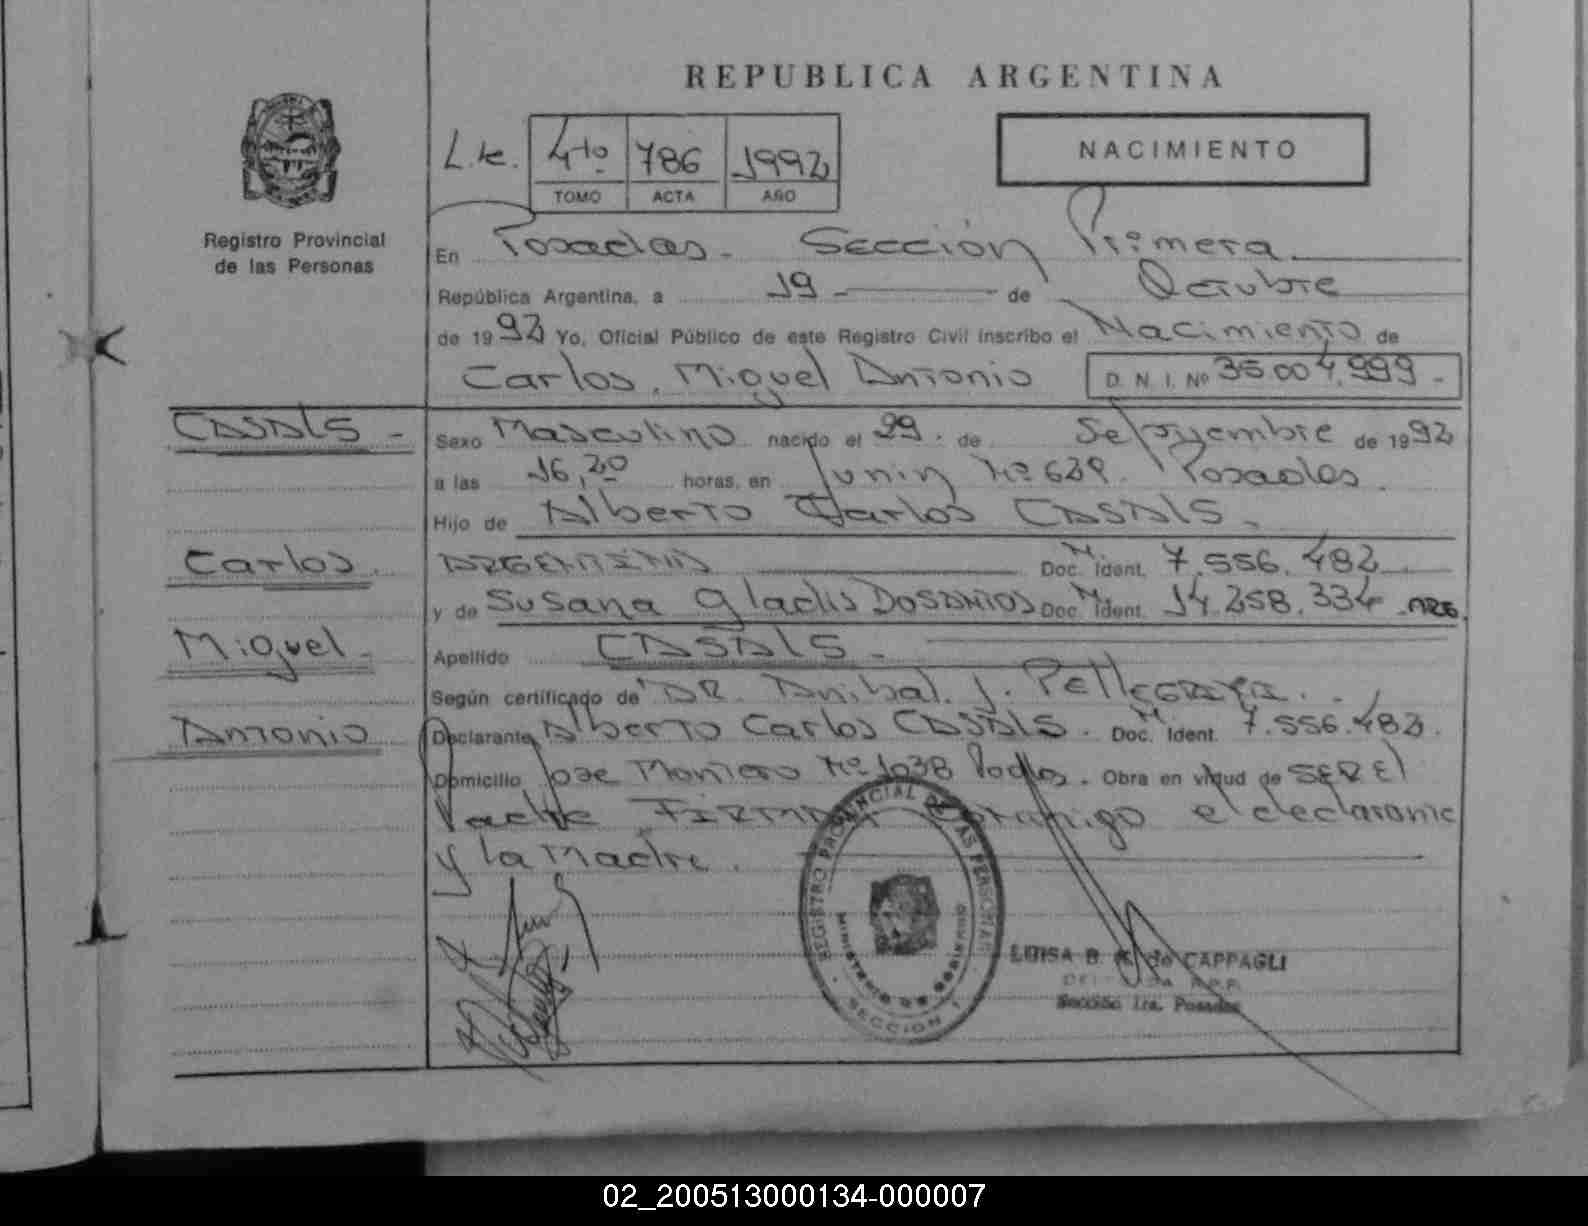 REPUBLICA ARGENTINA
NACIMIENTO
L. te. 4to 786 1992
TOMO ACTA AÑO
Registro Provincial
de las Personas
En Posadas. Sección Primera
República Argentina, a 19 - de Octubre
de 1992 Yo, Oficial Público de este Registro Civil inscribo el Nacimiento de
Carlos, Miguel Antonio D. N. I. Nº 35.004.999 -
CASALS - Sexo Masculino nacido el 29. de Septiembre de 1992
a las 16,20 horas, en Junin Nº 639. Posadas.
Hijo de Alberto Carlos CASALS.
Carlos. ARGENTINO Doc. Ident. M. 7.556.482
y de Susana Gladis DOSANTOS Doc. Ident. M. 14.258.334 ARG.
Miguel - Apellido CASALS -
Según certificado de DR. Anibal. J.
Antonio Declarante Alberto Carlos CASALS. Doc. Ident. M 7.556.482.
Domicilio Jose Montero Nº 1038 Pdas. Obra en virtud de SER El
Padre FIRMAN Conmigo el declarante
y la Madre.
REGISTRO PROVINCIAL DE LAS PERSONAS
MINISTERIO DE GOBIERNO
SECCION 1
LUISA B. de CAPPAGLI
R.P.P.
Sección 1ra. Posadas
02_200513000134-000007